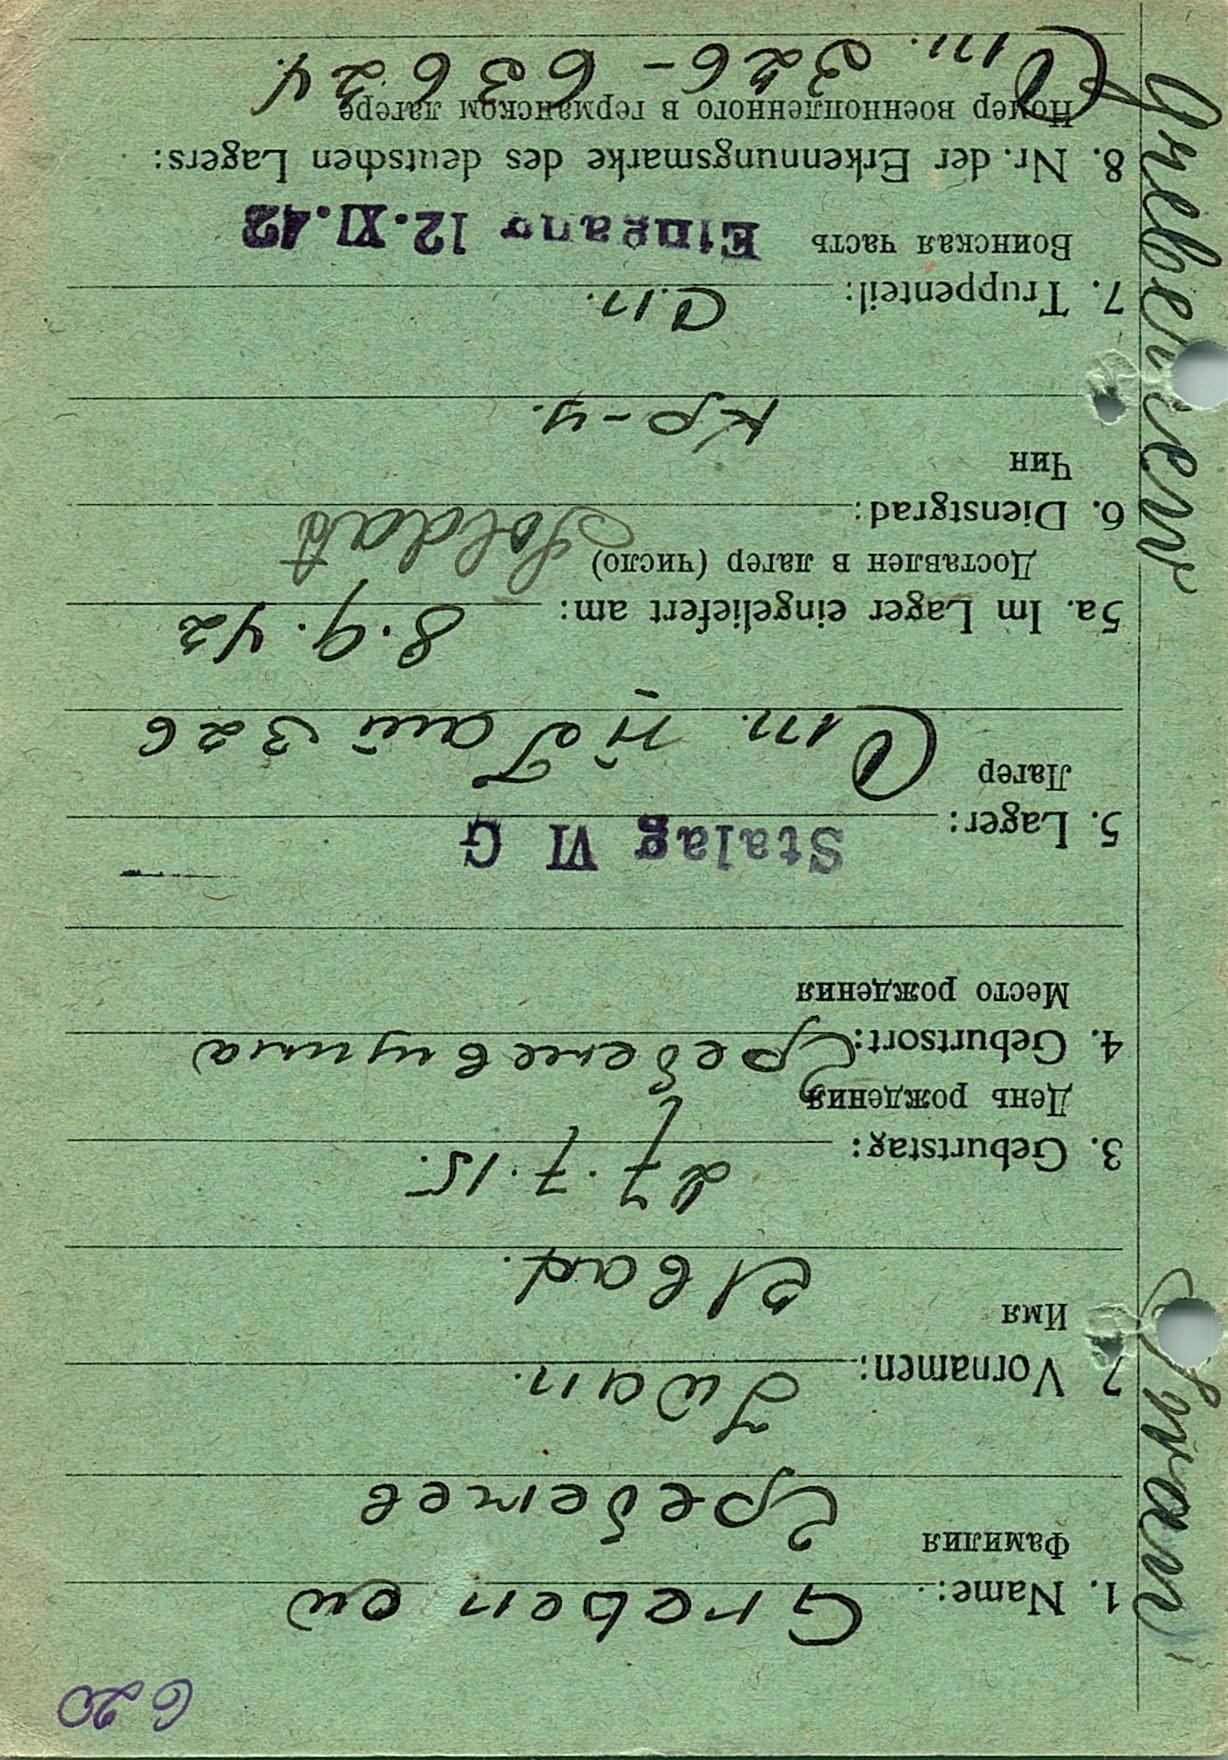 620
1. Name: Greben ew
Фамилия
Гребенев
2. Vornamen: Iwan.
Имя
Иван.
3. Geburtstag: 27.7.15.
День рождения
4. Geburtsort:
Место рождения
Stalag VI G
5. Lager:
Лагер
326
5a. Im Lager eingeliefert am: 8.9.42
Доставлен в лагер (число)
Soldat
6. Dienstgrad:
Чин
кр-ц.
7. Truppenteil:
Воинская часть
Eingang 12.XI.42
8. Nr. der Erkennungsmarke des deutschen Lagers:
Номер военнопленного в германском лагере
326-63624.
Iwan
Grebenew